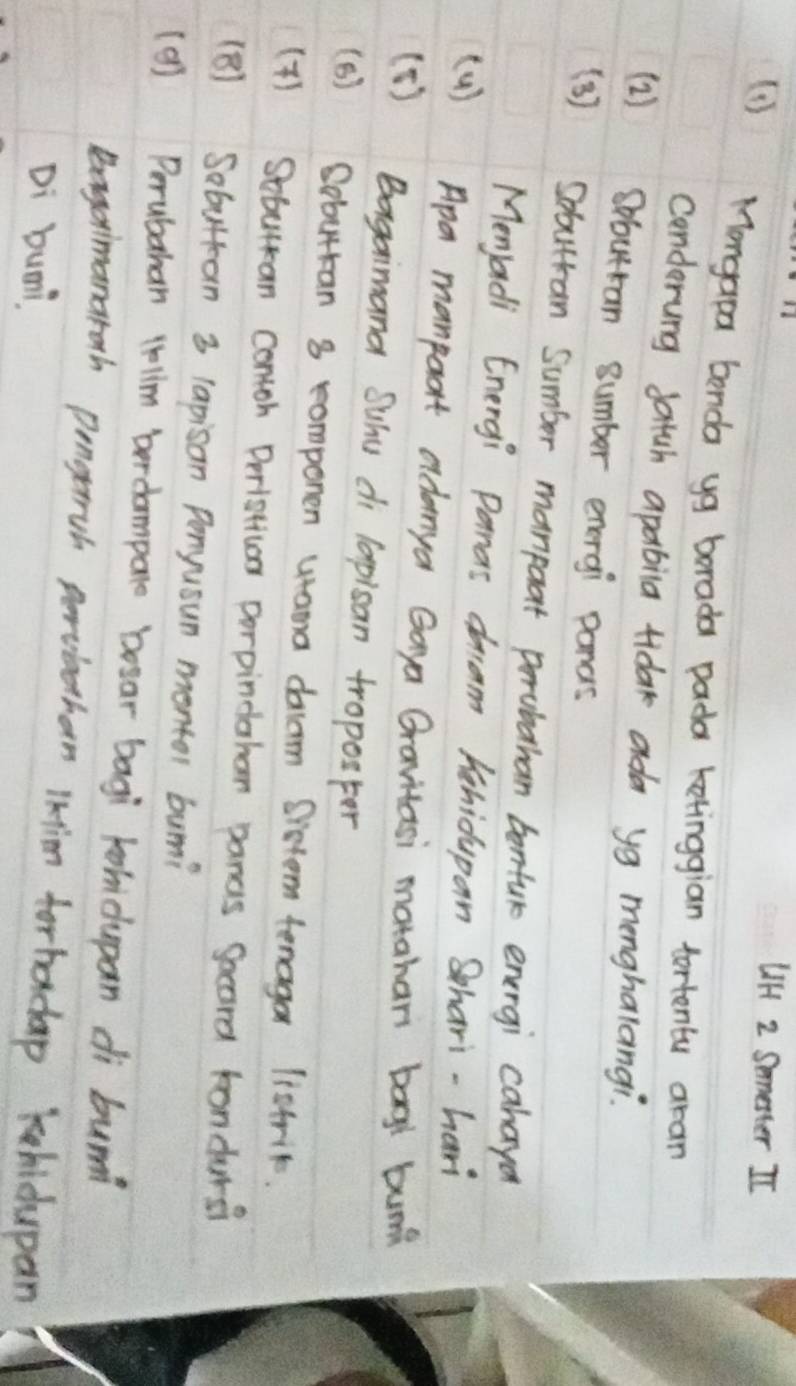 UH 2 Semester II
(1) Mengapa benda yg berada pada ketinggian tertentu akan
cenderung jatuh apabila tidak ada yg menghalangi.
(2) Sebutkan sumber energi panas
(3) Sebutkan sumber manfaat perubahan bentuk energi cahaya
Menjadi Energi panas dalam kehidupan sehari-hari
(4) Apa manfaat adanya Gaya Gravitasi matahari bagi bumi
(5) Bagaimana suhu di lapisan troposfer
(6) Sebutkan 3 komponen utama dalam sistem tenaga listrik.
(7) Sebutkan contoh peristiwa perpindahan panas secara konduksi
(8) Sebutkan 3 lapisan penyusun mantel bumi
(9) Perubahan iklim berdampak besar bagi kehidupan di bumi
Bagaimanakah pengaruh perubahan iklim terhadap kehidupan
Di bumi.